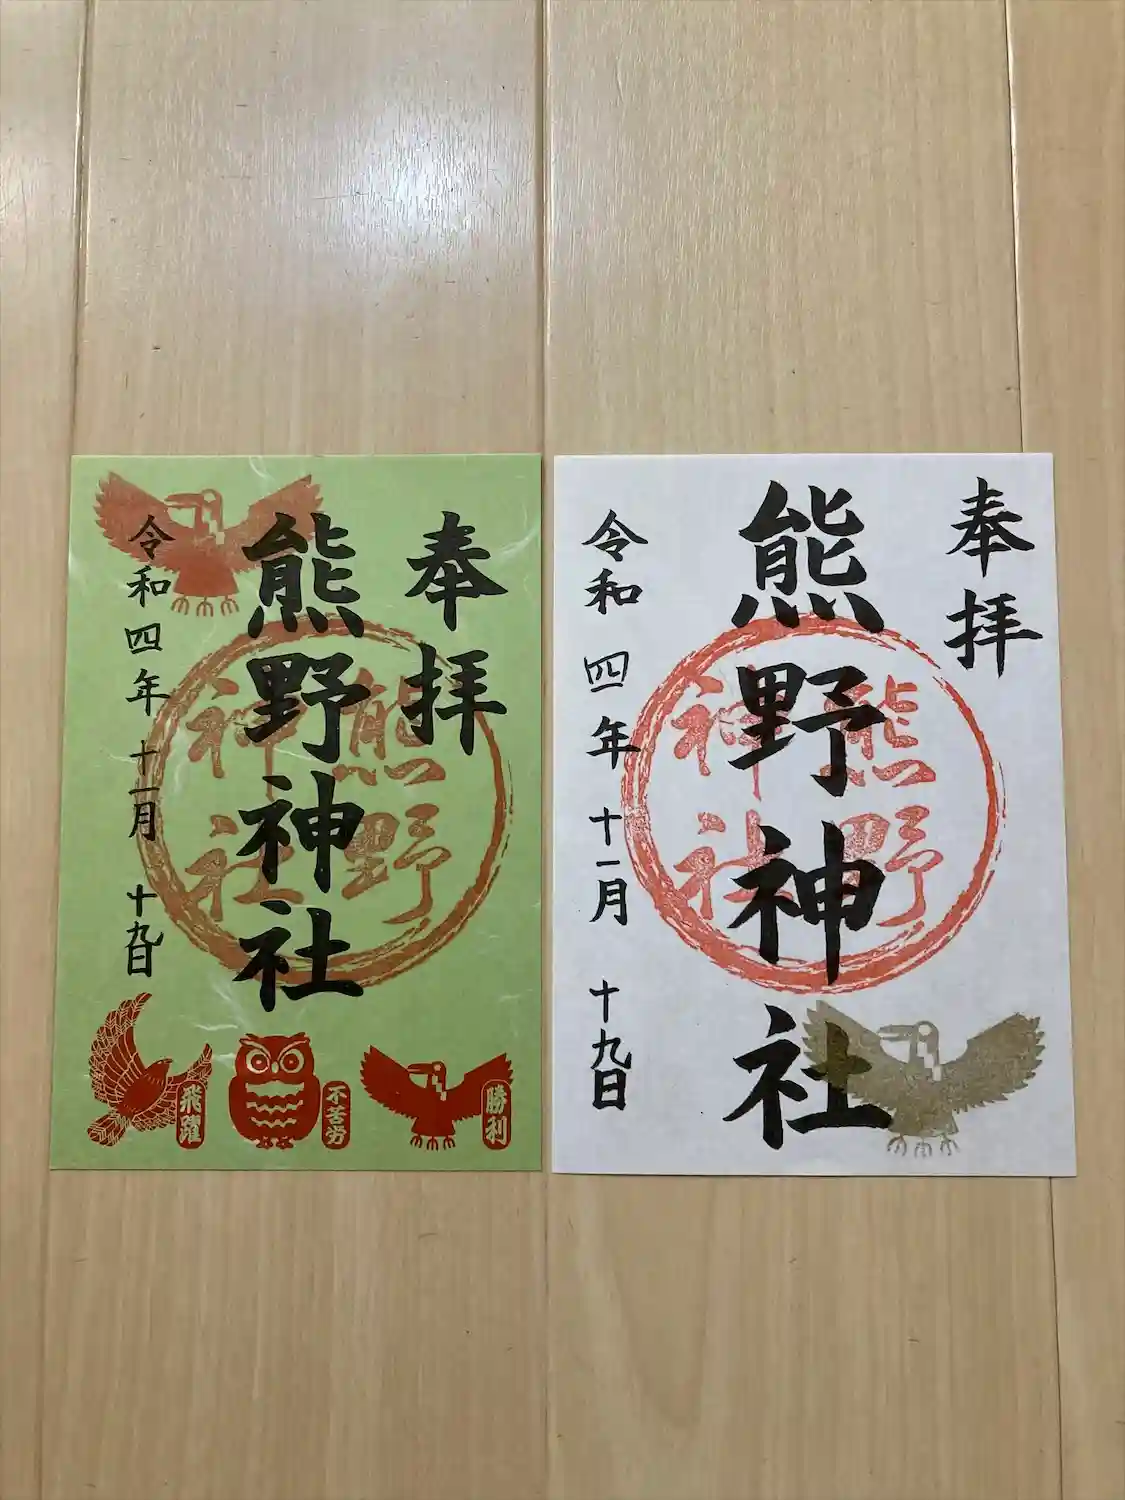 奉拝
熊野神社
令和四年十一月十九日
熊野
神社
飛躍
不苦労
勝利
奉拝
熊野神社
令和四年十一月十九日
熊野
神社